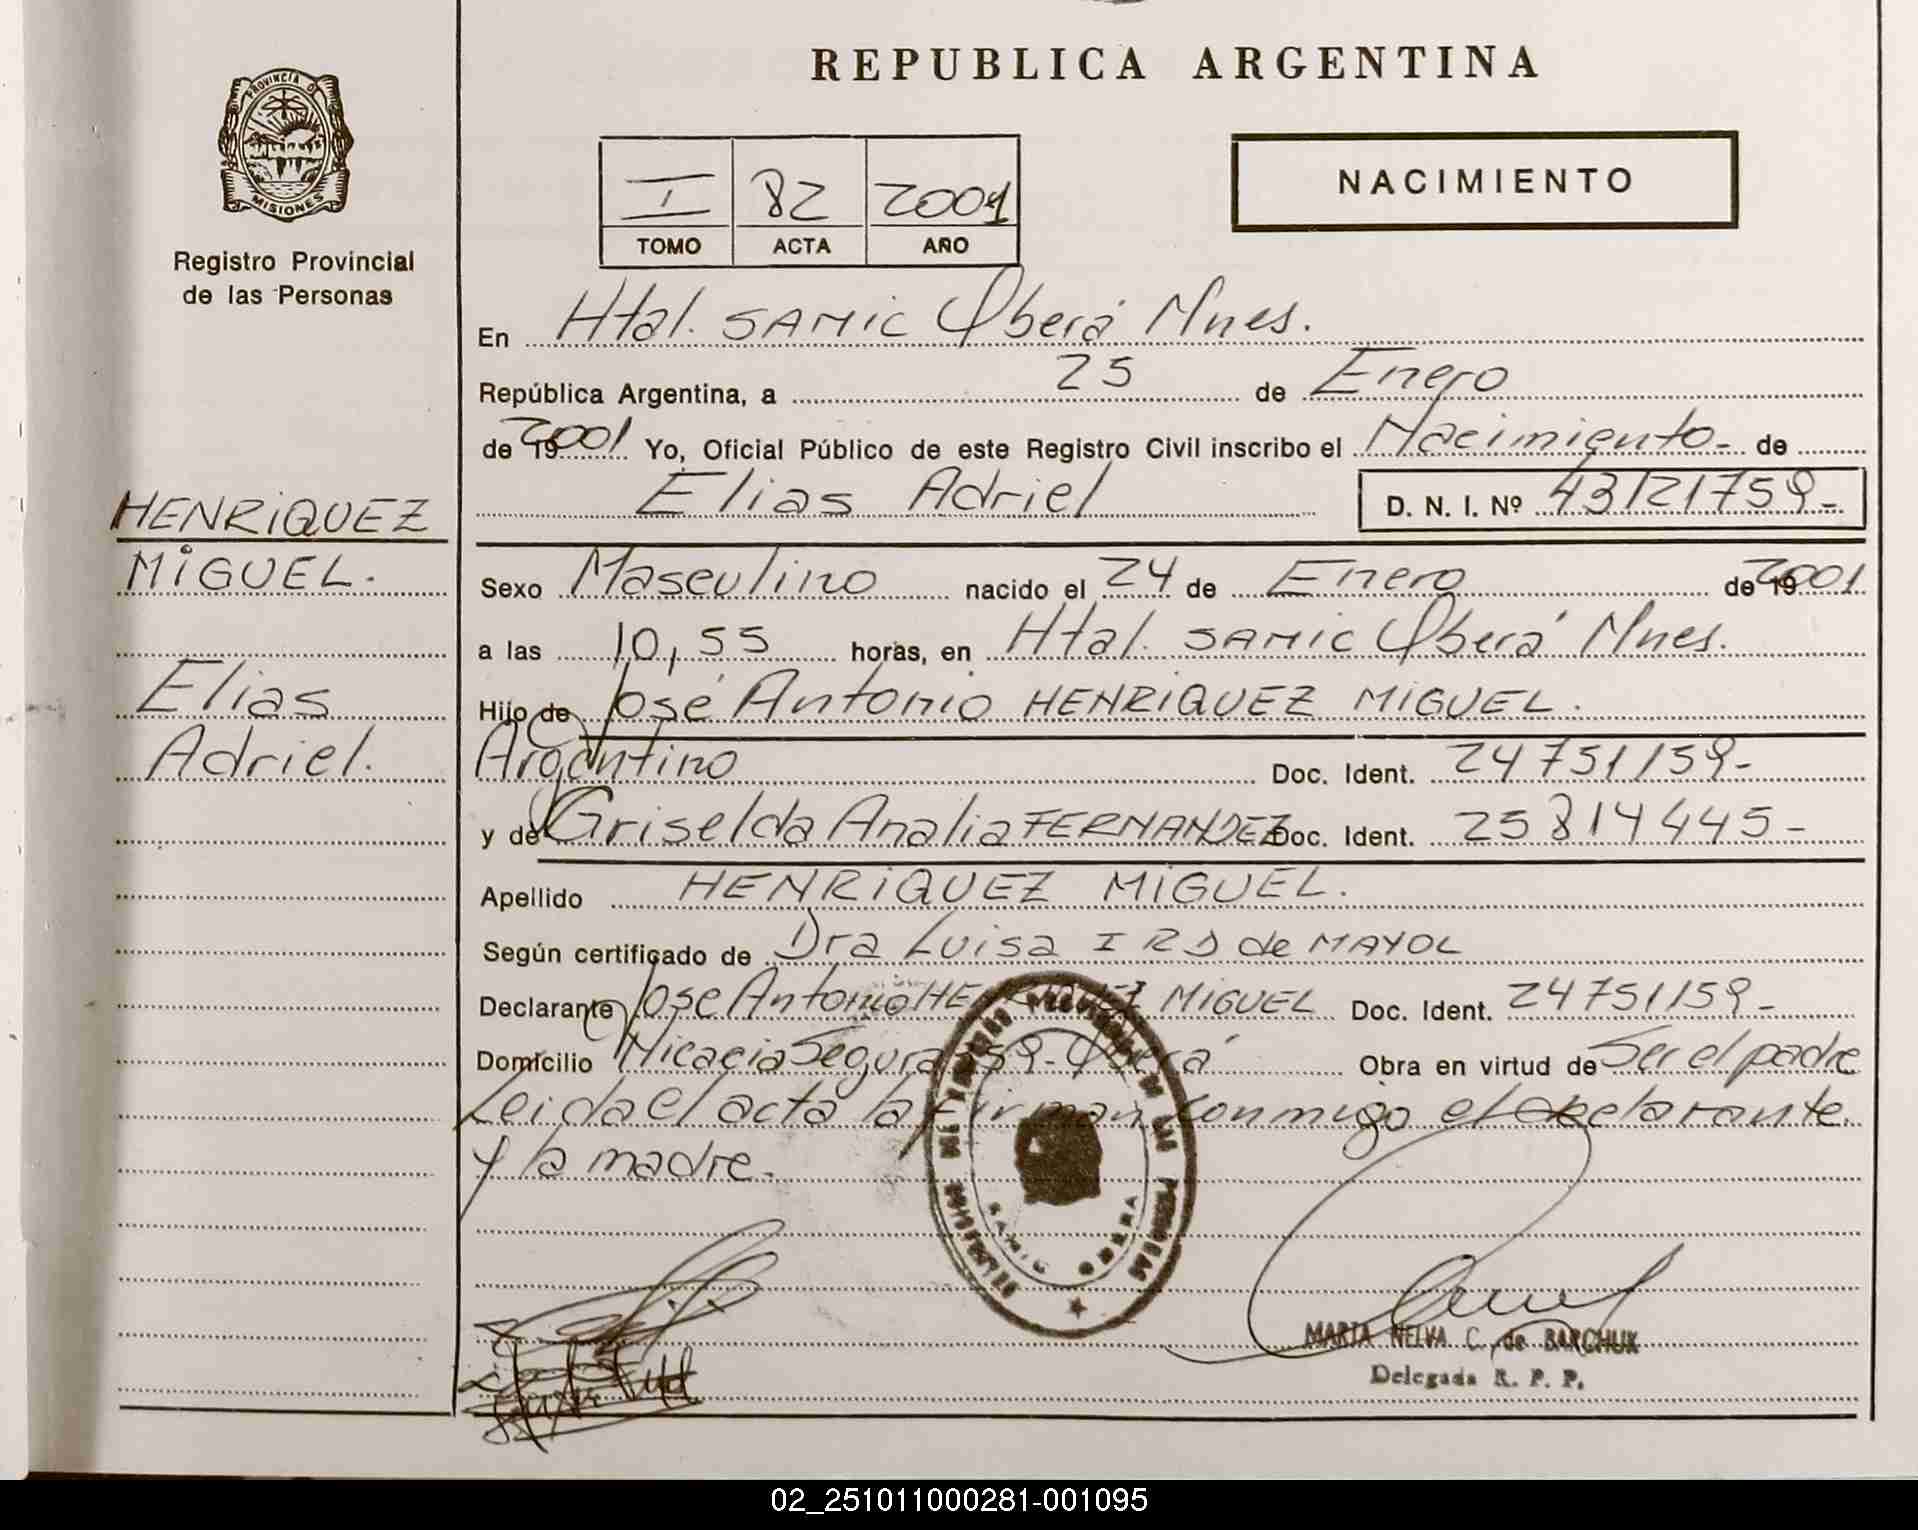 REPUBLICA ARGENTINA
PROVINCIA D
MISIONES
Registro Provincial
de las Personas
I 82 2001
TOMO ACTA AÑO
NACIMIENTO
En Htal. SAMIC Oberá Mnes.
República Argentina, a 25 de Enero
de 19 2001 Yo, Oficial Público de este Registro Civil inscribo el Nacimiento- de
Elias Adriel D. N. I. Nº 43121759-
HENRiQUEZ
MiGUEL.
Elias
Adriel.
Sexo Masculino nacido el 24 de Enero de 19 2001.
a las 10,55 horas, en Htal. SAMIC Oberá Mnes.
Hijo de José Antonio HENRiQUEZ MiGUEL.
Argentino Doc. Ident. 24751159-
y de Griselda Analia FERNANDEZ Doc. Ident. 25814445-
Apellido HENRiQUEZ MiGUEL.
Según certificado de Dra Luisa I R D de MAYOL
Declarante Jose Antonio HENRIQUEZ MiGUEL Doc. Ident. 24751159-
Domicilio Nicacia Segura 59-Oberá Obra en virtud de Ser el padre
Leida el acta la firman conmigo el declarante
y la madre-
PROVINCIAL DE LAS PERSONAS
SAMIC OBERA
MARIA NELVA C. de BARCHUK
Delegada R. P. P.
02_251011000281-001095